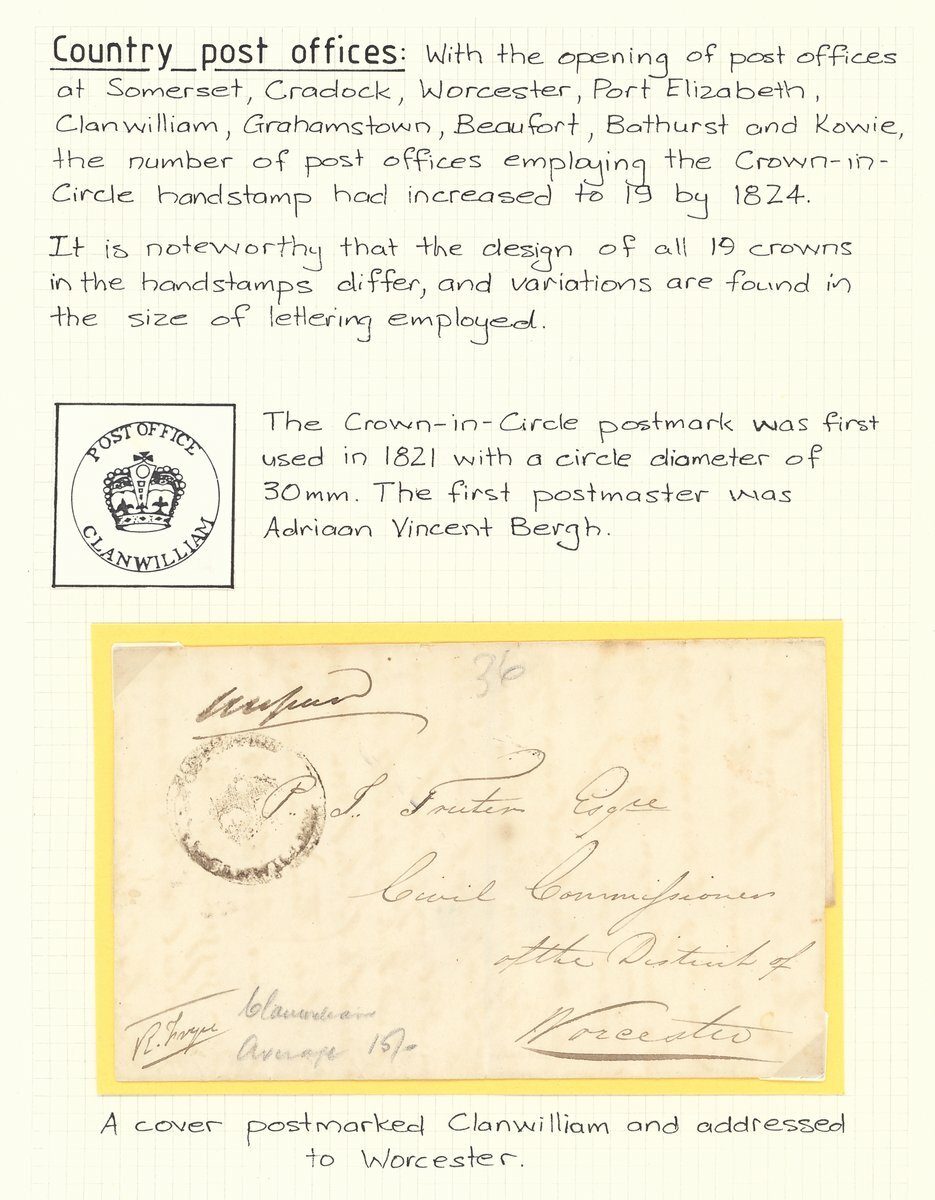 Country post offices: With the opening of post offices
at Somerset, Cradock, Worcester, Port Elizabeth,
Clanwilliam, Grahamstown, Beaufort, Bathurst and Kowie,
the number of post offices employing the Crown-in-
Circle handstamp had increased to 19 by 1824.
It is noteworthy that the design of all 19 crowns
in the handstamps differ, and variations are found in
the size of lettering employed.
POST OFFICE
CLANWILLIAM
The Crown-in-Circle postmark was first
used in 1821 with a circle diameter of
30mm. The first postmaster was
Adriaan Vincent Bergh.
36
CLANWILL
P. J. Truter Esqre
Civil Commissioner
of the District of
Worcester
Clanwilliam
Average 15/-
A cover postmarked Clanwilliam and addressed
to Worcester.